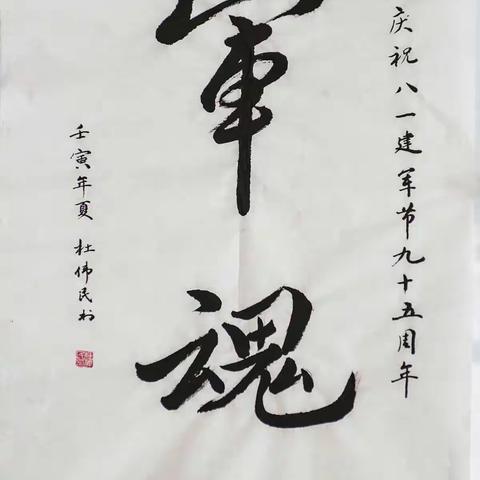 庆祝八一建军节九十五周年
軍魂
壬寅年夏 杜伟民书